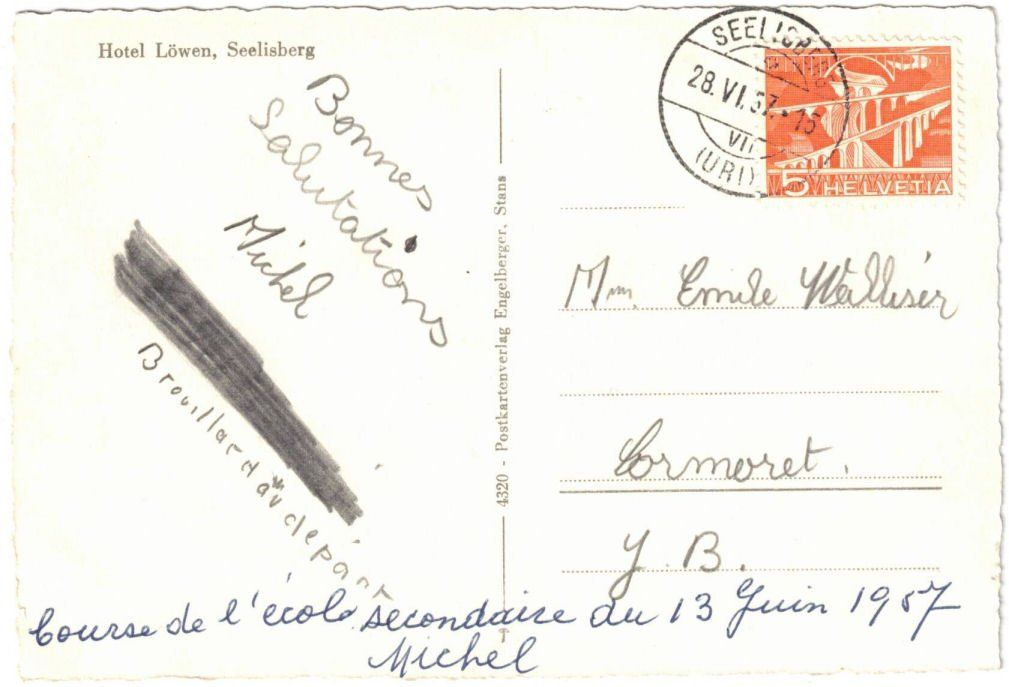 Hotel Löwen, Seelisberg
Bonnes
Salutations
Michel
Brouillard au départ
4320 - Postkartenverlag Engelberger, Stans
SEELISBERG
28.VI.57.-15
VII
(URI)
5 HELVETIA
Mm. Emile Walliser
Cormoret.
J. B.
Course de l'école secondaire du 13 Juin 1957
Michel